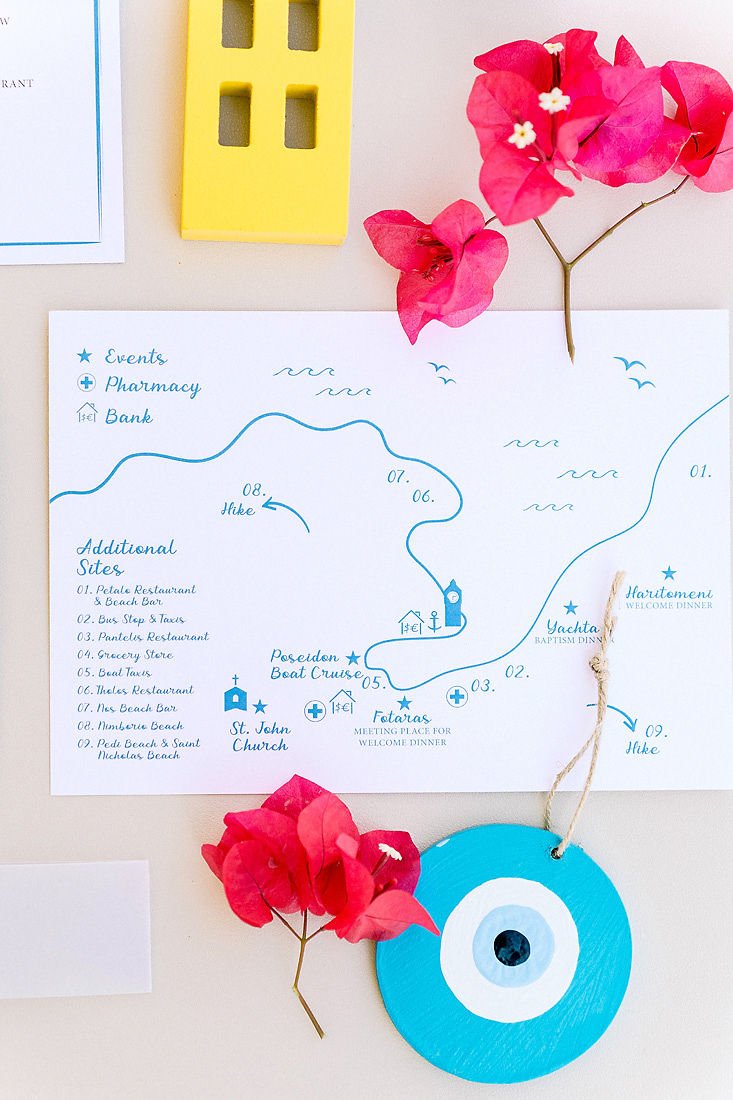 W
RANT
Events
Pharmacy
$€ Bank
01.
07.
06.
08.
Hike
Additional
Sites
01. Petalo Restaurant
& Beach Bar
02. Bus Stop & Taxis
03. Pantelis Restaurant
04. Grocery Store
05. Boat Taxis
06. Tholos Restaurant
07. Nos Beach Bar
08. Nimborio Beach
09. Pedi Beach & Saint
Nicholas Beach
Haritomeni
WELCOME DINNER
Yachta
BAPTISM DINNER
$€
Poseidon
Boat Cruise
05.
03.
02.
$€
St. John
Church
Fotaras
MEETING PLACE FOR
WELCOME DINNER
09.
Hike